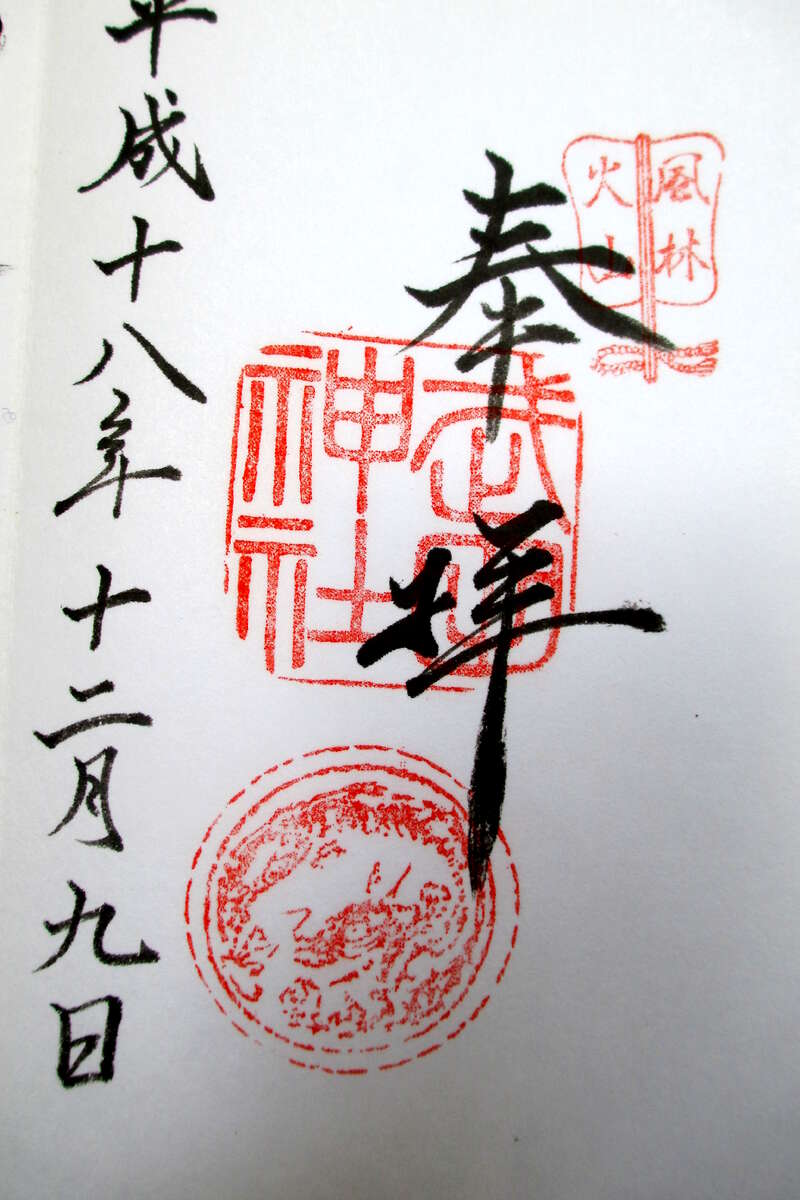 風林
火山
奉拝
武田
神社
平成十八年十二月九日